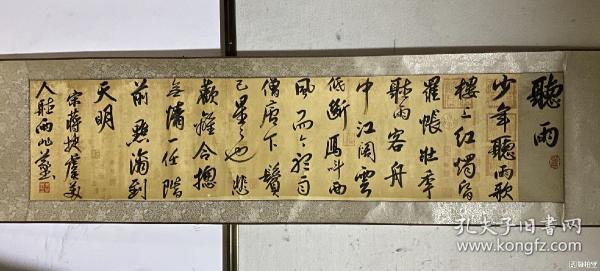 聽雨
少年聽雨歌
樓上紅燭昏
羅帳壯年
聽雨客舟
中江闊雲
低斷雁叫西
風而今聽雨
僧廬下鬢
已星星也悲
歡離合總
無情一任階
前點滴到
天明
宋蔣捷虞美
人聽雨
孔夫子旧书网
www.kongfz.com